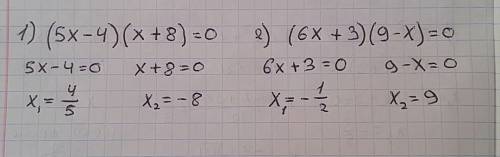 1) (5x-4)(x+8)=0 2) (6x+3)(9-x)=0
5x-4=0 x+8=0 6x+3=0 9-x=0
x₁=4/5 x₂=-8 x₁=-1/2 x₂=9